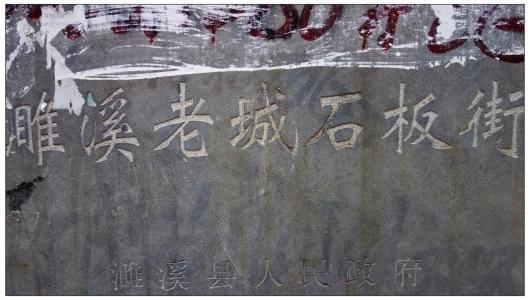 睢溪老城石板街
濉溪县人民政府